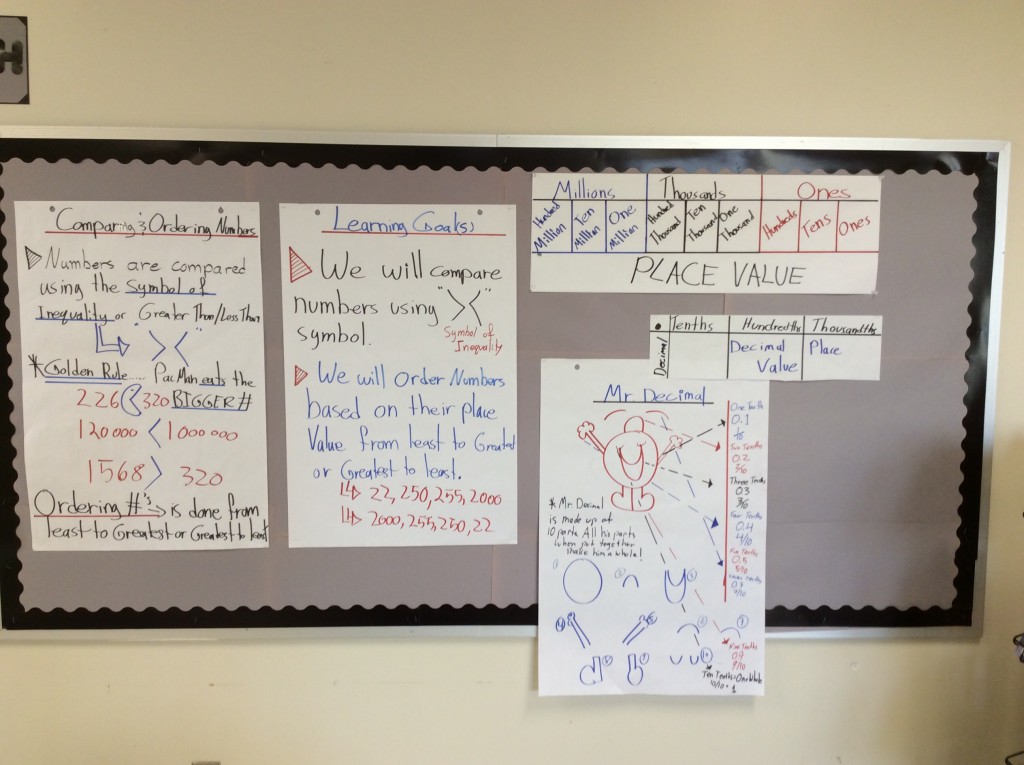 Comparing & Ordering Numbers
Numbers are compared
using the Symbol of
Inequality or Greater Than/Less Than
" > < "
*Golden Rule.... PacMan eats the
226 < 320 BIGGER #
120 000 < 1 000 000
1568 > 320
Ordering #'s → is done from
least to Greatest or Greatest to least
Learning Goal(s)
We will compare
numbers using "> <"
symbol. Symbol of
Inequality
We will Order Numbers
based on their place
Value from least to Greatest
or Greatest to least.
22, 250, 255, 2000
2000, 255, 250, 22
Millions Thousands Ones
Hundred Million Ten Million One Million Hundred Thousand Ten Thousand One Thousand Hundreds Tens Ones
PLACE VALUE
Decimal Tenths Hundredths Thousandths
Decimal Place
Value
Mr Decimal
One Tenth
0.1
Two Tenths
0.2
Three Tenths
0.3
Four Tenths
0.4
4/10
Five Tenths
0.5
5/10
0.7
7/10
* Mr. Decimal
is made up of
10 parts. All his parts
when put together
make him a whole!
Nine Tenths
0.9
9/10
Ten Tenths = One Whole
10/10 = 1